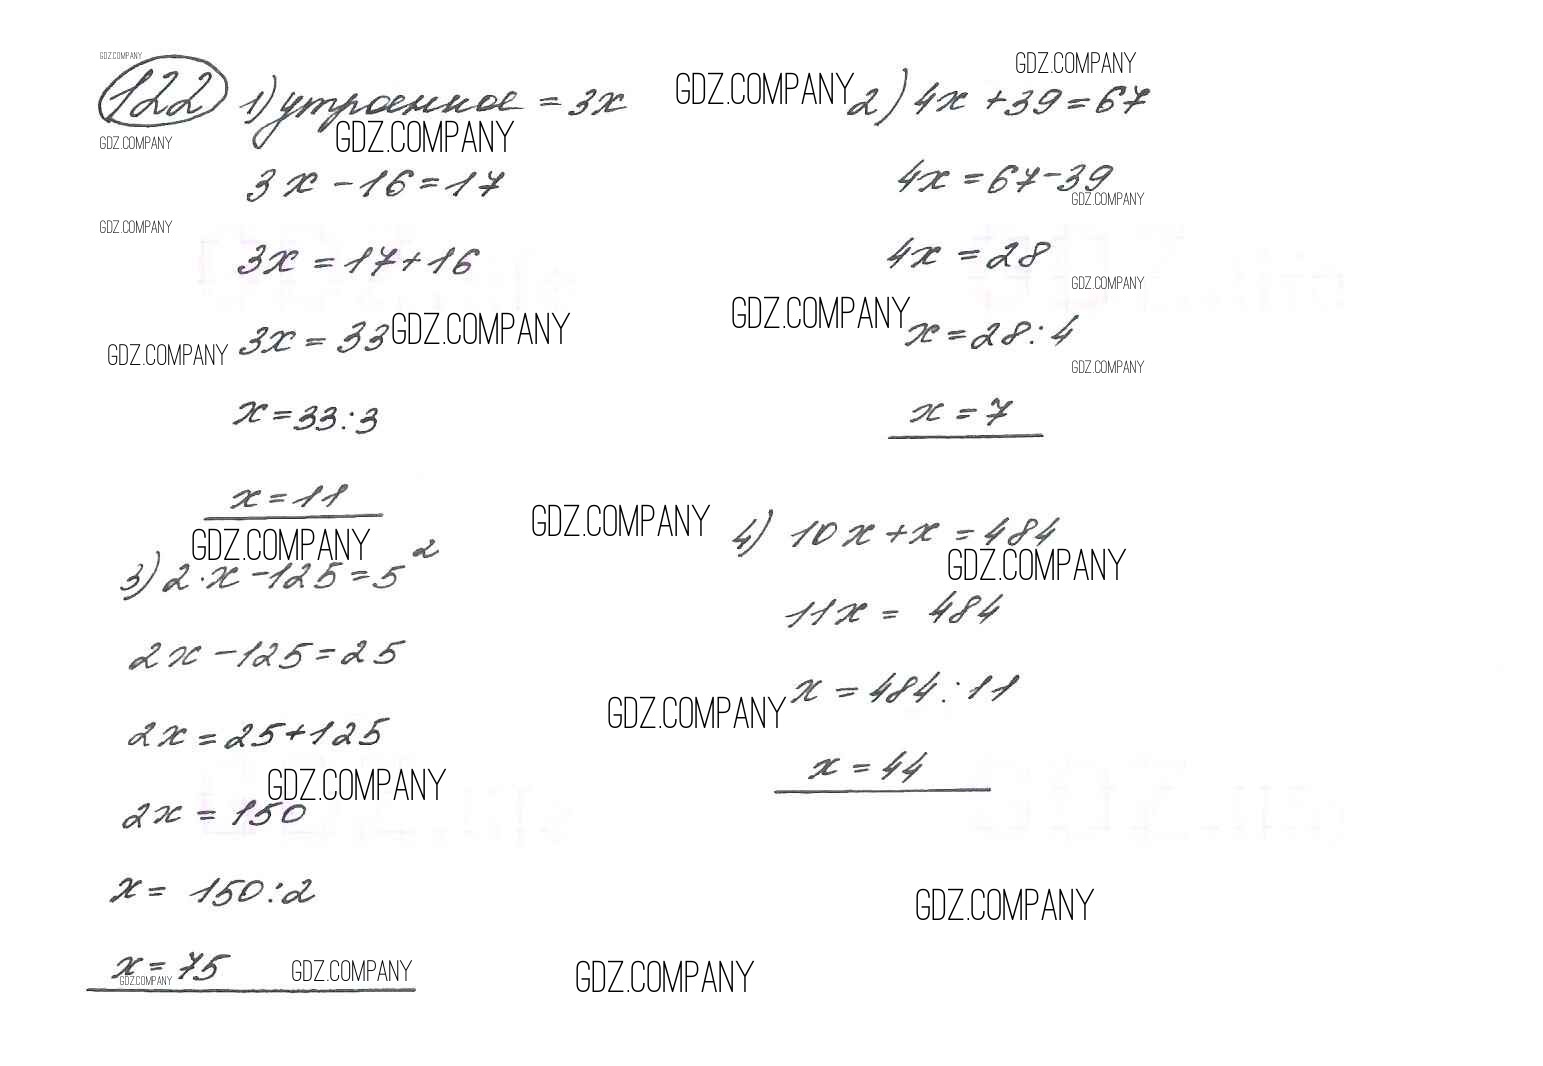 GDZ.COMPANY
122 1) утроенное = 3x
GDZ.COMPANY
GDZ.COMPANY
3x - 16 = 17
GDZ.COMPANY
3x = 17 + 16
3x = 33
GDZ.COMPANY
GDZ.COMPANY
x = 33 : 3
x = 11
GDZ.COMPANY
GDZ.COMPANY
GDZ.COMPANY
2) 4x + 39 = 67
4x = 67 - 39
GDZ.COMPANY
4x = 28
GDZ.COMPANY
GDZ.COMPANY
x = 28 : 4
GDZ.COMPANY
x = 7
3) 2 · x - 125 = 5²
2x - 125 = 25
2x = 25 + 125
GDZ.COMPANY
2x = 150
x = 150 : 2
x = 75
GDZ.COMPANY
GDZ.COMPANY
GDZ.COMPANY
4) 10x + x = 484
GDZ.COMPANY
11x = 484
x = 484 : 11
GDZ.COMPANY
x = 44
GDZ.COMPANY
GDZ.COMPANY